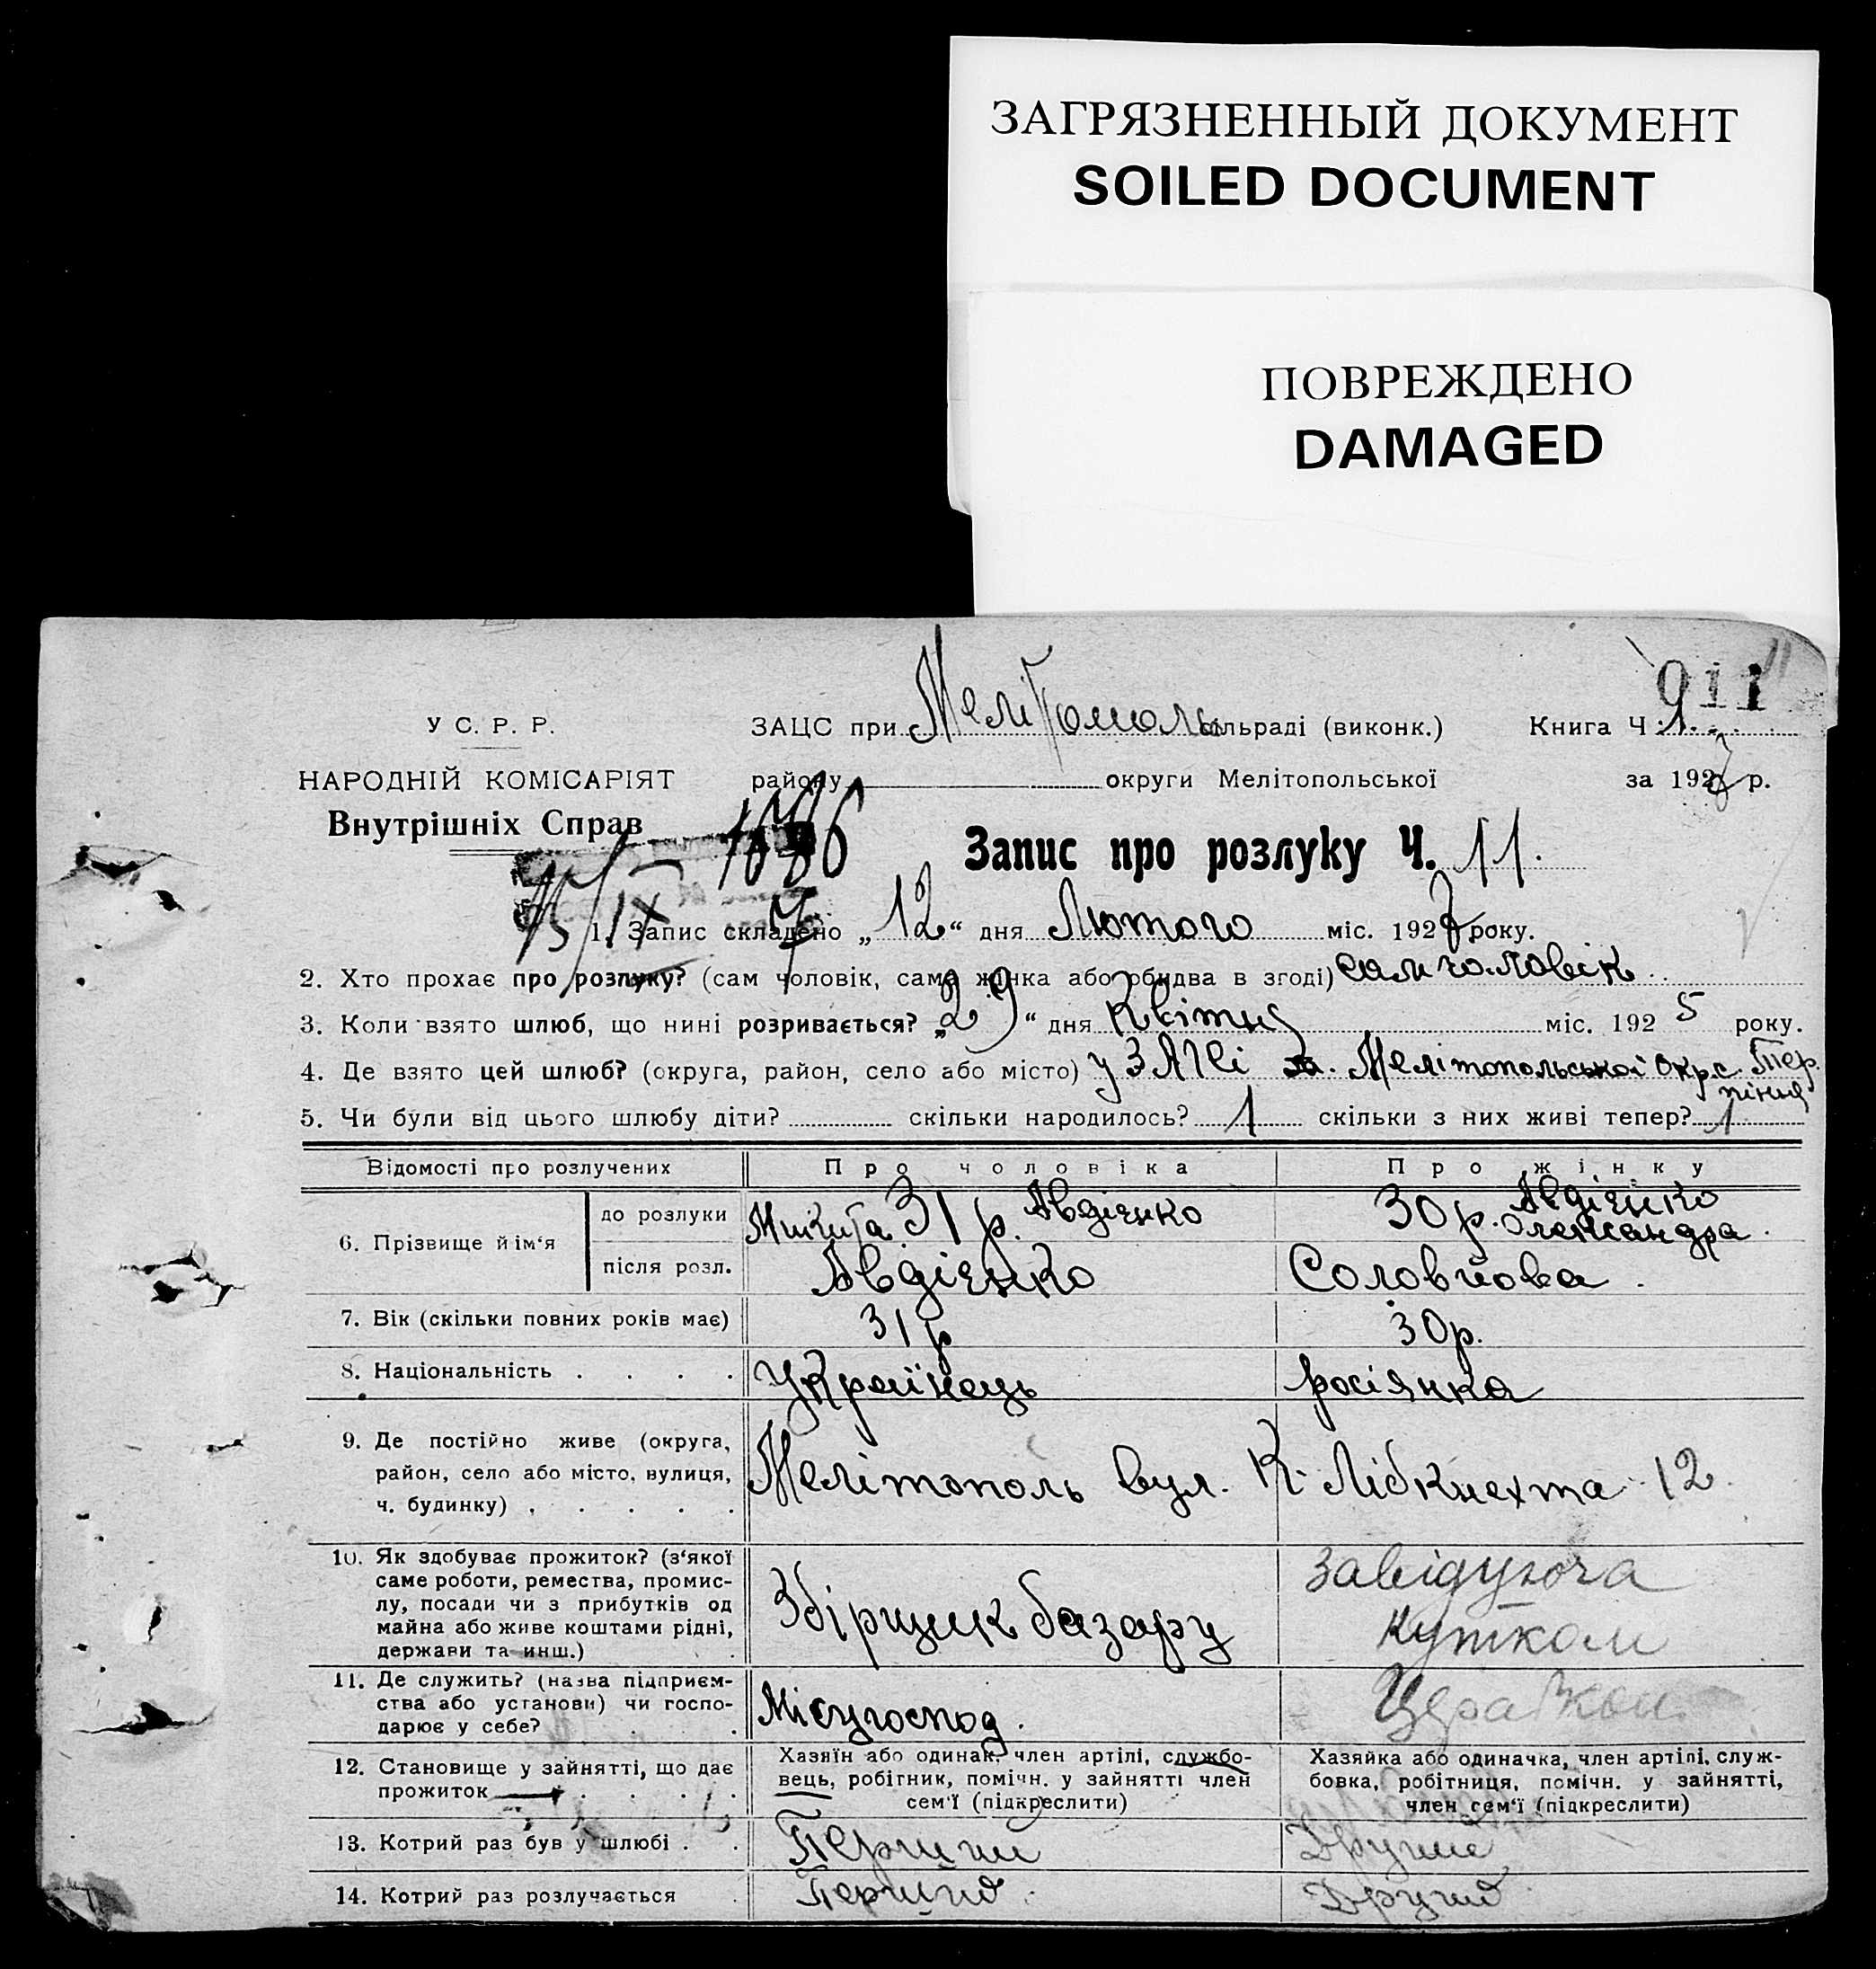 ЗАГРЯЗНЕННЫЙ ДОКУМЕНТ
SOILED DOCUMENT
ПОВРЕЖДЕНО
DAMAGED
911
У С. Р. Р.
ЗАЦС при Мелітополь сільраді (виконк.) Книга Ч. 1.
НАРОДНІЙ КОМІСАРІЯТ
району округи Мелітопольської за 1927 р.
Внутрішніх Справ
1686
Запис про розлуку Ч. 11.
15/IX 7
1. Запис складено „12“ дня Лютого міс. 1927 року.
2. Хто прохає про розлуку? (сам чоловік, сама жінка або обидва в згоді) сам чоловік
3. Коли взято шлюб, що нині розривається? „29“ дня Квітня міс. 1925 року.
4. Де взято цей шлюб? (округа, район, село або місто) у ЗАГСі Мелітопольської Окр. с. Тер
піння
5. Чи були від цього шлюбу діти? скільки народилось? 1 скільки з них живі тепер? 1
Відомості про розлучених
Про чоловіка
Про жінку
6. Прізвище й ім‘я
до розлуки
Микита 31 р. Авдієнко
30 р. Авдієнко
Олександра.
після розл.
Авдієнко
Соловйова.
7. Вік (скільки повних років має)
31 р
30 р.
8. Національність . . . .
Українець
росіянка
9. Де постійно живе (округа,
район, село або місто, вулиця,
ч. будинку) . . . . .
Мелітополь вул. К. Лібкнехта 12.
10. Як здобуває прожиток? (з‘якої
саме роботи, ремества, промис-
лу, посади чи з прибутків од
майна або живе коштами рідні,
держави та инш.) .
Збірщик базару
Завідуюча
кутком
11. Де служить? (назва підприєм-
ства або установи) чи госпо-
дарює у себе? . . .
Місцгоспод.
12. Становище у зайнятті, що дає
прожиток . . . .
Хазяїн або одинак, член артілі, службо-
вець, робітник, помічн. у зайнятті член
сем‘ї (підкреслити)
Хазяйка або одиначка, член артілі, служ-
бовка, робітниця, помічн. у зайнятті,
член сем‘ї (підкреслити)
13. Котрий раз був у шлюбі . .
Перший
Другий
14. Котрий раз розлучається .
Перший
Другий